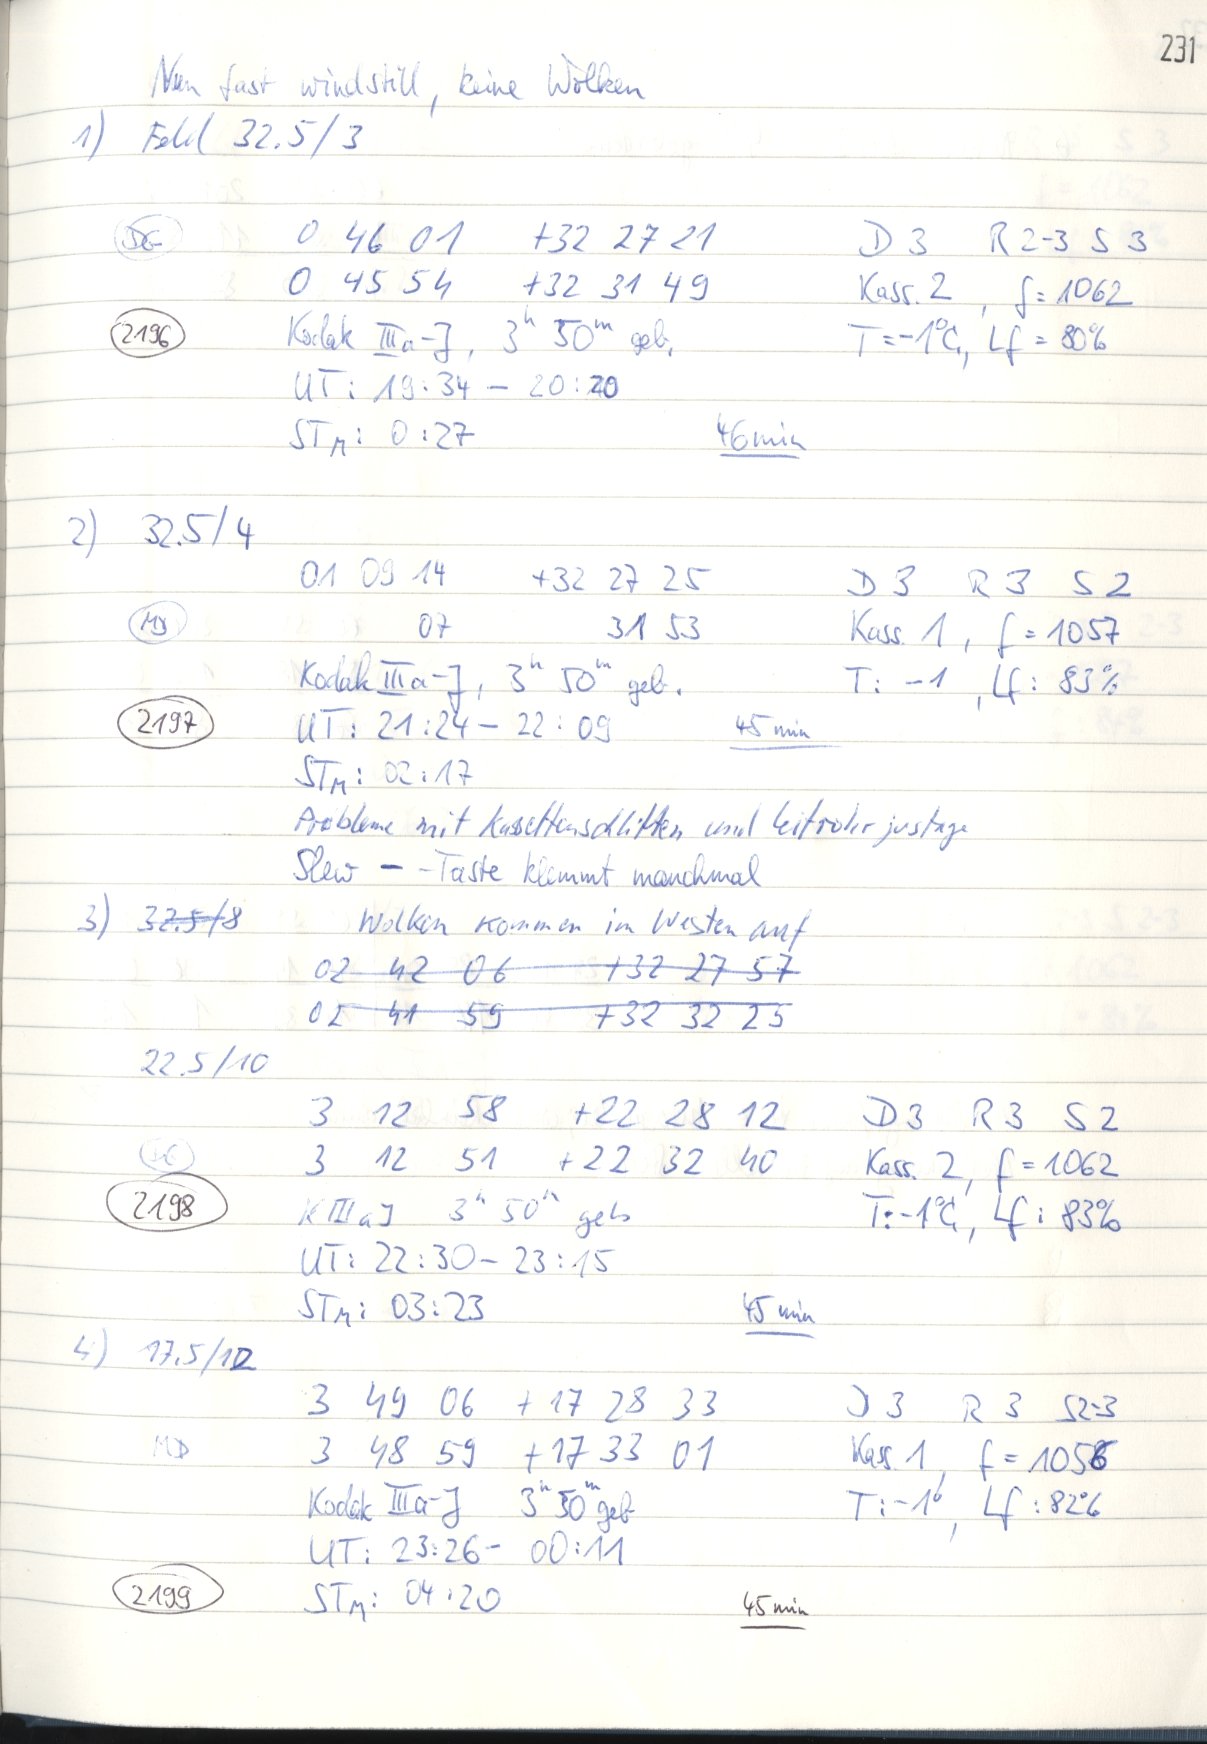 231
Nun fast windstill, keine Wolken
1) Feld 32.5/3
DG 0 46 01 +32 27 21 D 3 R 2-3 S 3
0 45 54 +32 31 49 Kass. 2, f = 1062
2196 Kodak IIIa-J, 3h 50m geb. T = -1°C, Lf = 80%
UT: 19:34 - 20:20
STM: 0:27 46 min
2) 32.5/4
01 09 14 +32 27 25 D 3 R 3 S 2
MD 07 31 53 Kass. 1, f = 1057
Kodak IIIa-J, 3h 50m geb. T: -1, Lf: 83%
2197 UT: 21:24 - 22:09 45 min
STM: 02:17
Probleme mit Kassettenschlitten und Leitrohrjustage
Slew - -Taste klemmt manchmal
3) 32.5/8 Wolken kommen im Westen auf
02 42 06 +32 27 57
02 41 59 +32 32 25
22.5/10
3 12 58 +22 28 12 D 3 R 3 S 2
DG 3 12 51 +22 32 40 Kass. 2, f = 1062
2198 K IIIaJ 3h 50m geb T: -1°C, Lf: 83%
UT: 22:30 - 23:15
STM: 03:23 45 min
4) 17.5/12
3 49 06 +17 28 33 D 3 R 3 S2-3
MD 3 48 59 +17 33 01 Kass. 1, f = 1056
Kodak IIIa-J 3h 50m geb T: -1°, Lf: 82%
UT: 23:26 - 00:11
2199 STM: 04:20 45 min